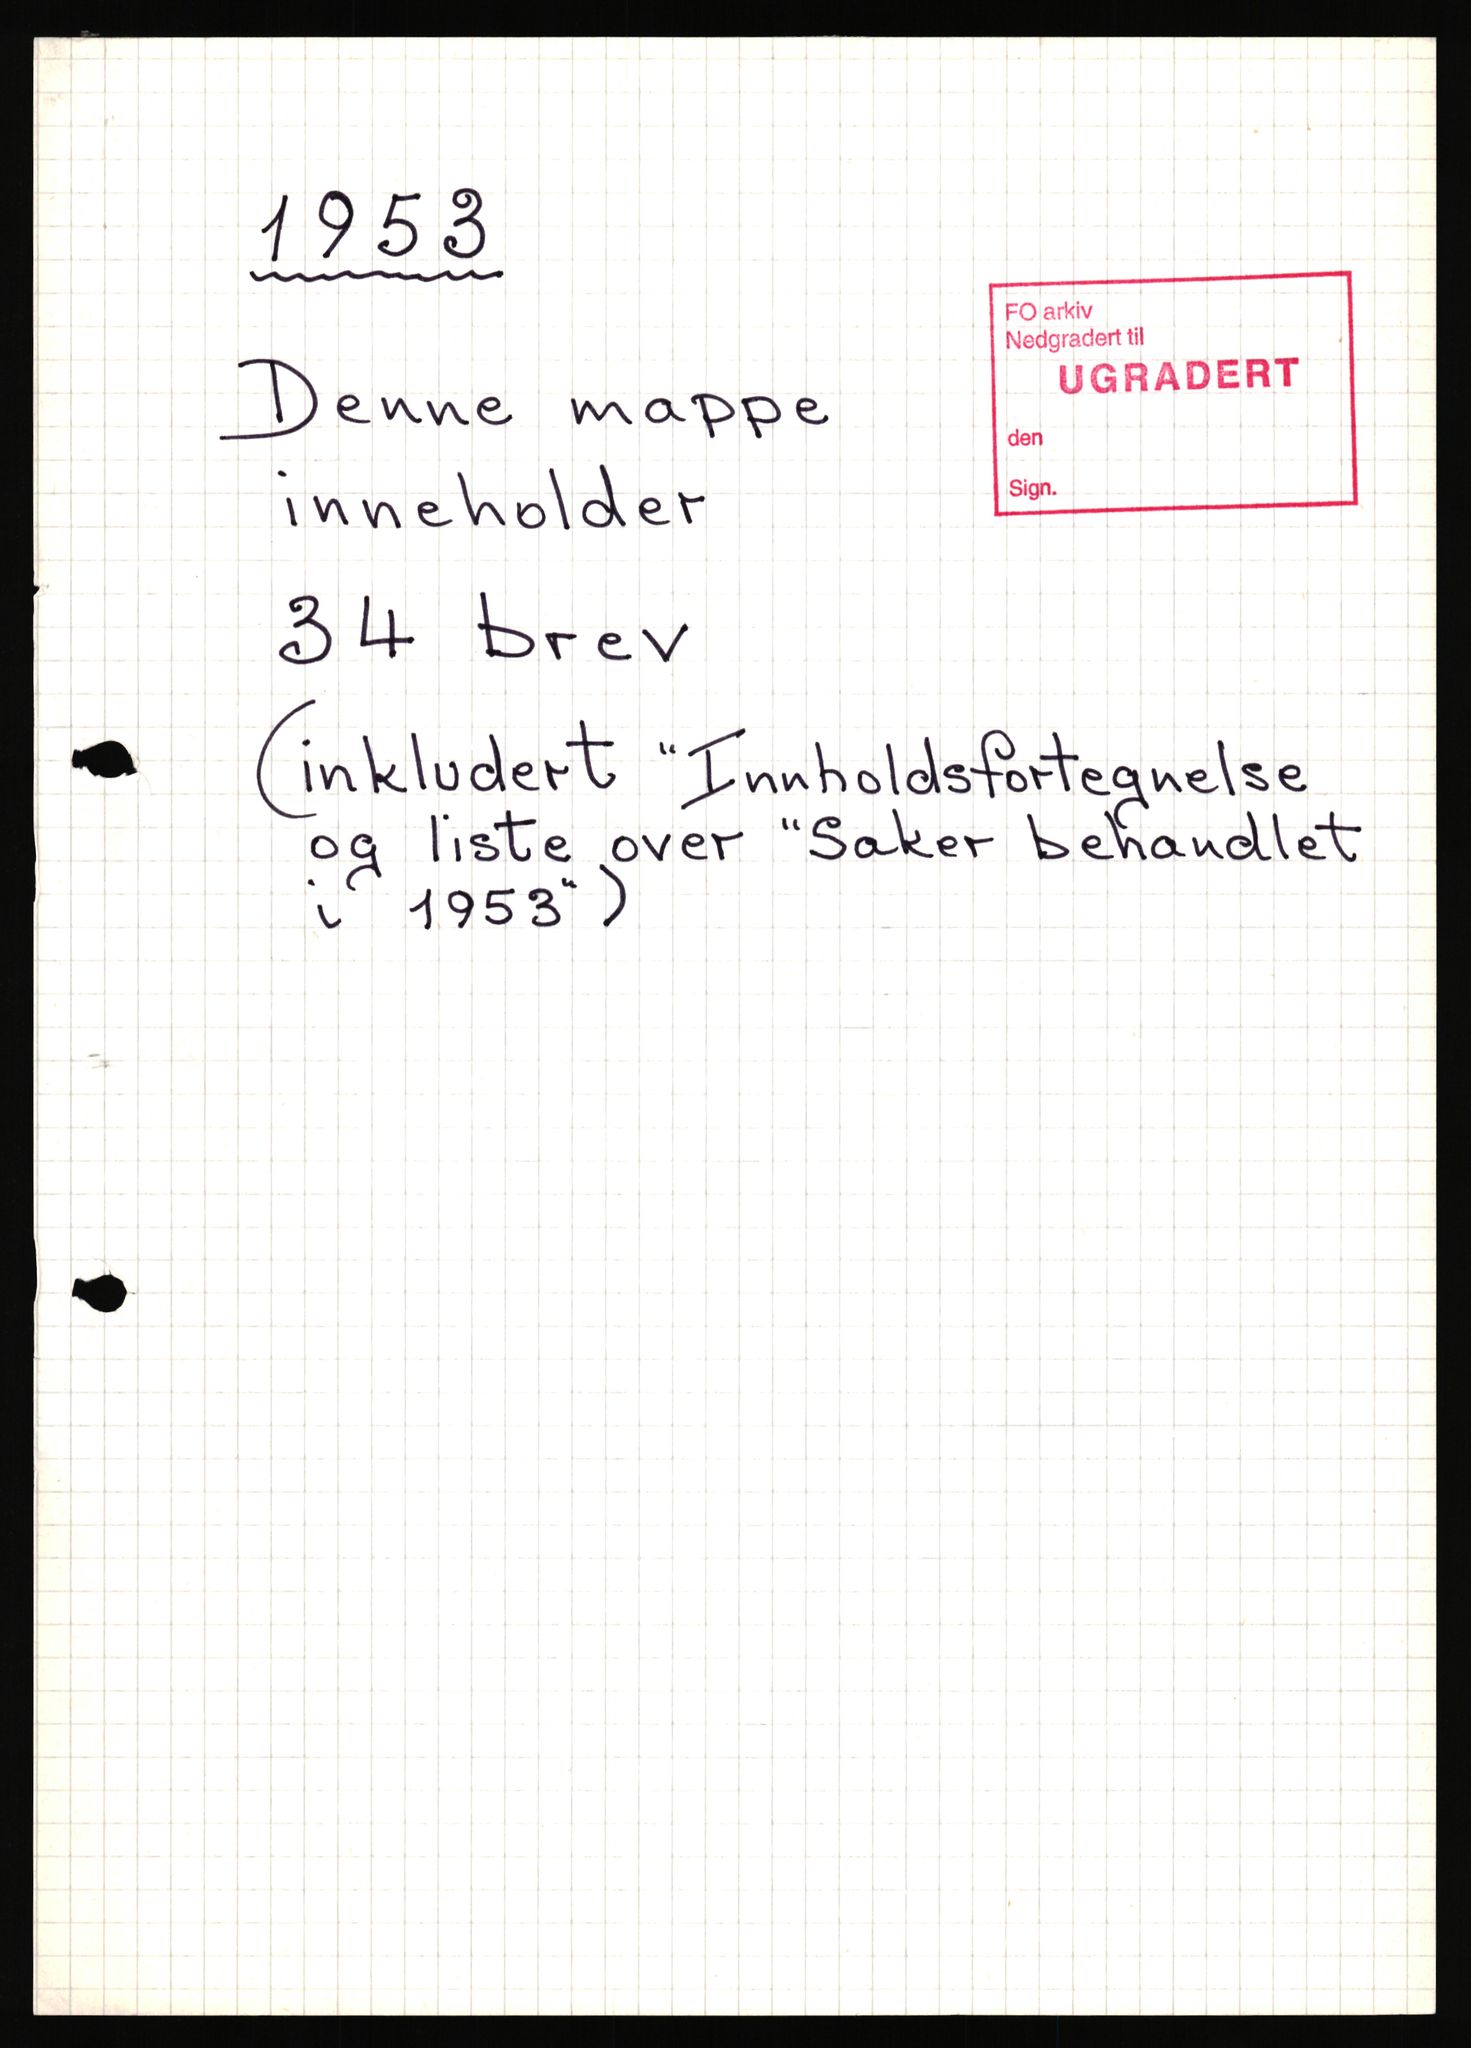 1953
FO arkiv
Nedgradert til
UGRADERT
den
Sign.
Denne mappe
inneholder
34 brev
(inkludert "Innholdsfortegnelse
og liste over "Saker behandlet
i 1953")